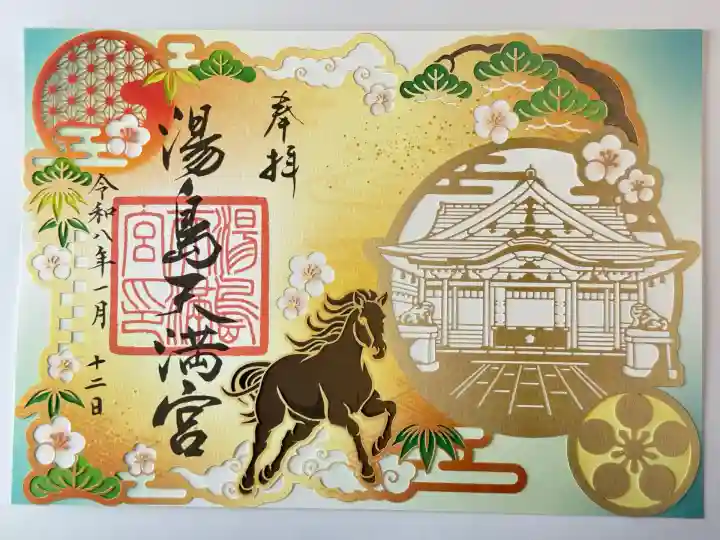 奉拝
湯島天満宮
湯島天満宮印
令和八年一月十二日